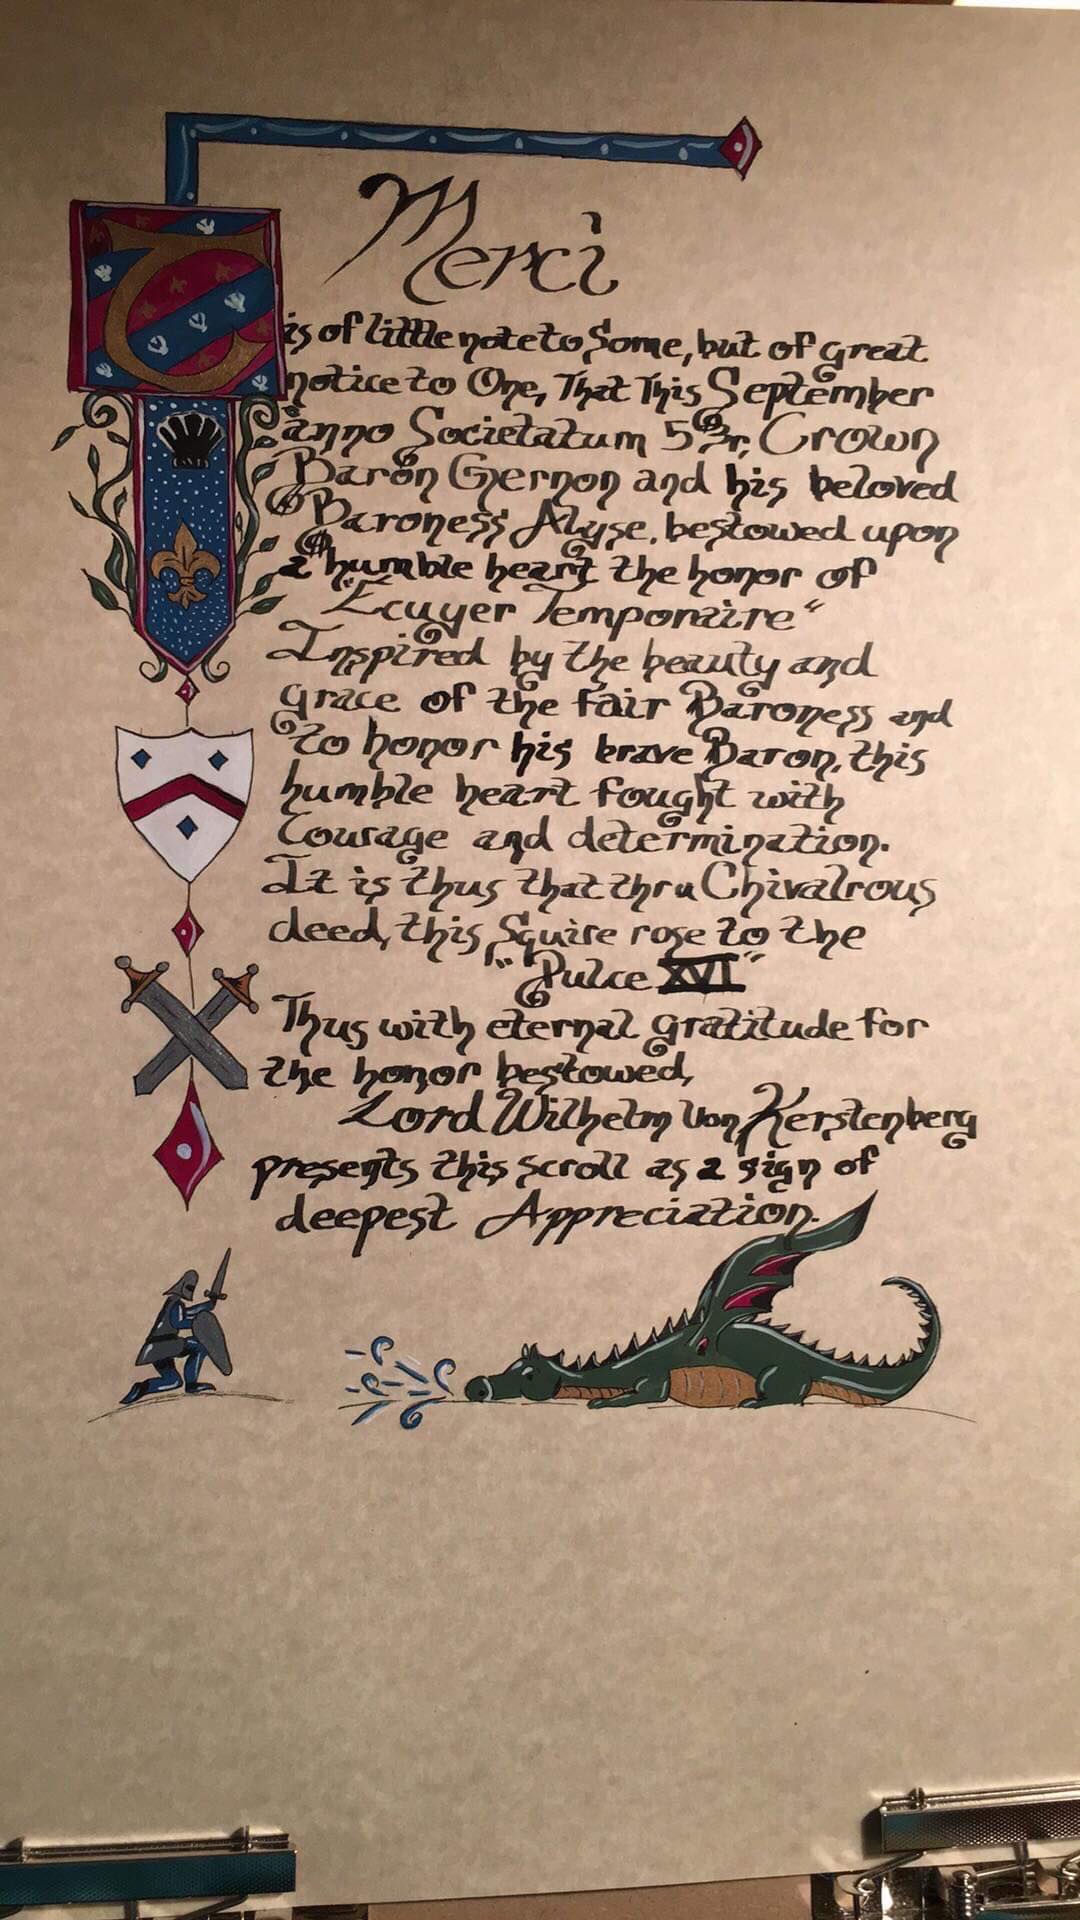 Merci
Tis of little note to Some, but of great
notice to One, That This September
anno Societatum 53r, Crown
Baron Gyernon and his beloved
Baroness Alyse, bestowed upon
a humble heart the honor of
"Ecuyer Temporaire"
Inspired by the beauty and
grace of the fair Baroness and
to honor his brave Baron, this
humble heart fought with
Courage and determination.
It is thus that thru Chivalrous
deed, this Squire rose to the
"Pulce XVI"
Thus with eternal gratitude for
the honor bestowed,
Lord Wilhelm Von Kerstenberg
presents this scroll as a sign of
deepest Appreciation.